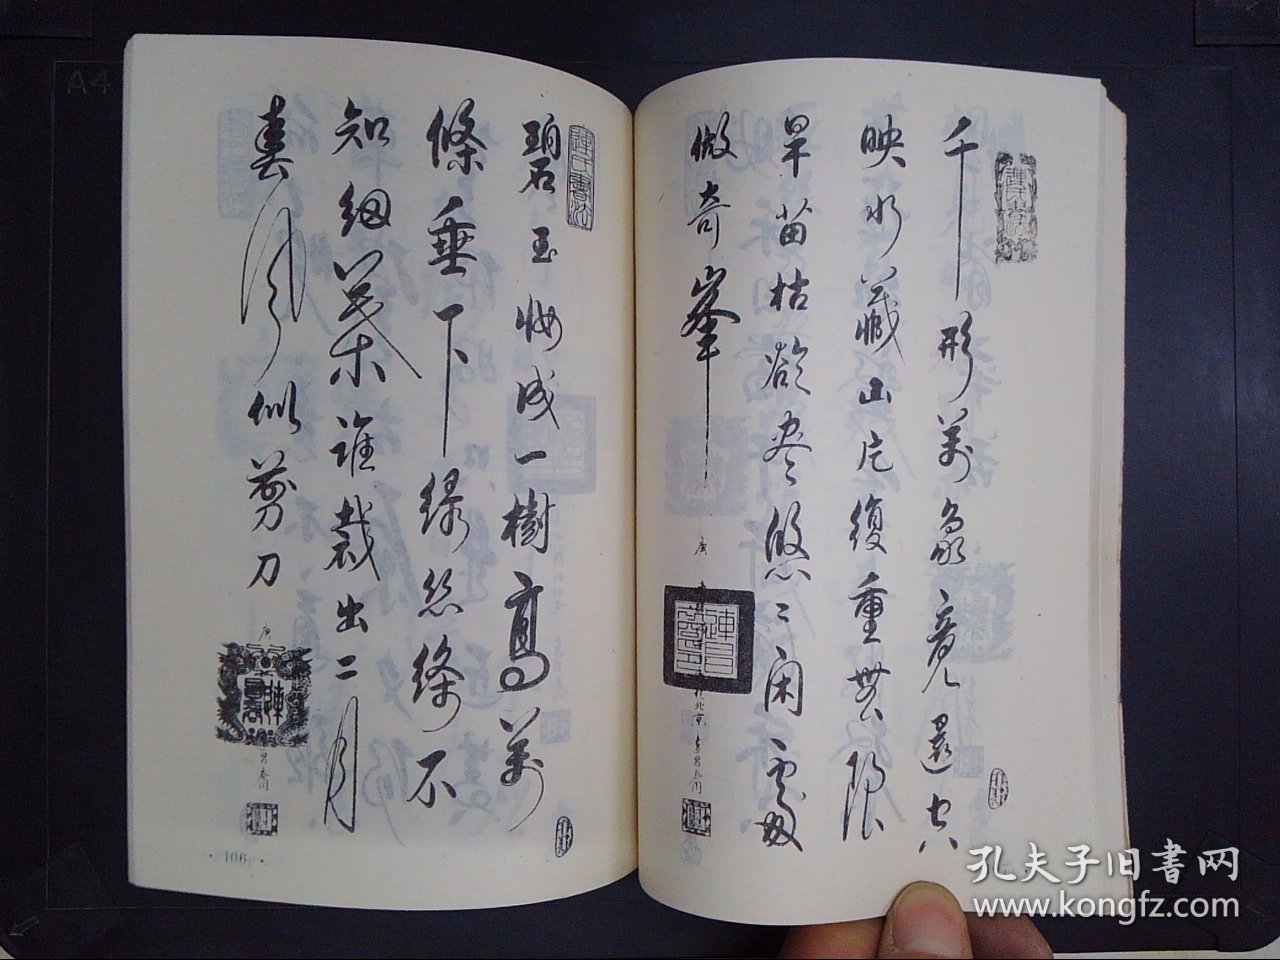 千形萬象竟還空
映水藏山片復重無限
旱苗枯欲盡悠〻闲處
做奇峯
北京
連氏書法
碧玉妝成一樹高萬
條垂下綠絲絛不
知細葉誰裁出二月
春風似剪刀
·106·
A4
孔夫子旧书网
www.kongfz.com